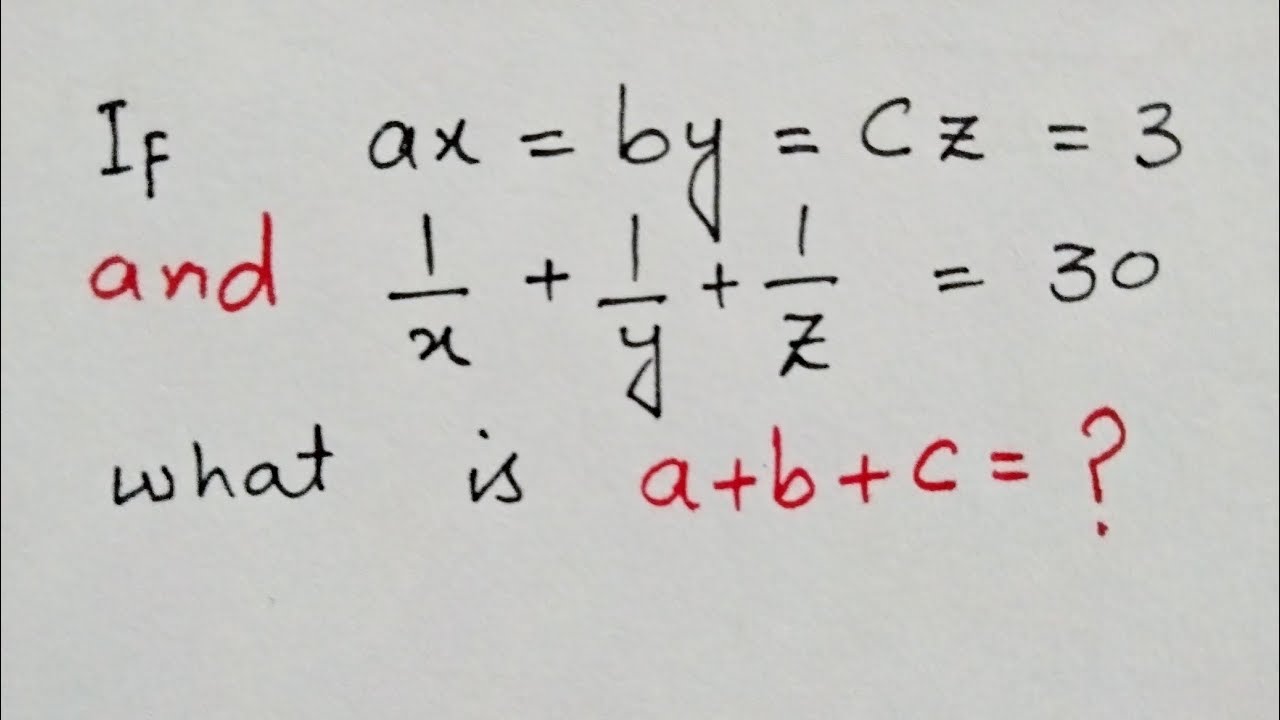 If ax = by = cz = 3
and 1/x + 1/y + 1/z = 30
what is a+b+c = ?